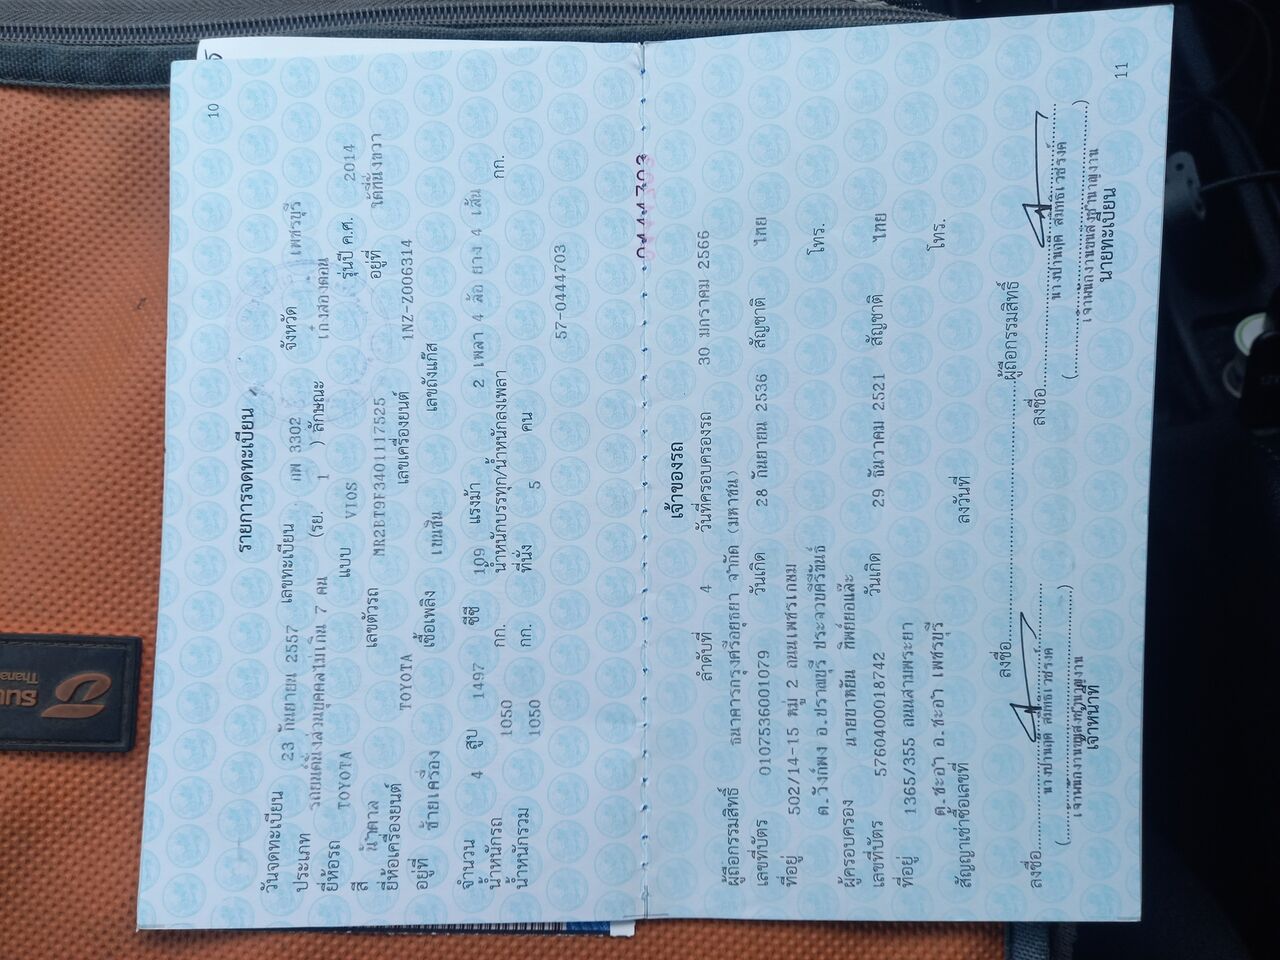 10
รายการจดทะเบียน
วันจดทะเบียน 23 กันยายน 2557 เลขทะเบียน กพ 3302 จังหวัด เพชรบุรี
ประเภท รถยนต์นั่งส่วนบุคคลไม่เกิน 7 คน (รย. 1 ) ลักษณะ เก๋งสองตอน
ยี่ห้อรถ TOYOTA แบบ VIOS รุ่นปี ค.ศ. 2014
สี น้ำตาล เลขตัวรถ MR2BT9F3401117525 อยู่ที่ ใต้ที่นั่งขวา
ยี่ห้อเครื่องยนต์ TOYOTA เลขเครื่องยนต์ 1NZ-Z006314
อยู่ที่ ซ้ายเครื่อง เชื้อเพลิง เบนซิน เลขถังแก๊ส
จำนวน 4 สูบ 1497 ซีซี 109 แรงม้า 2 เพลา 4 ล้อ ยาง 4 เส้น
น้ำหนักรถ 1050 กก. น้ำหนักบรรทุก/น้ำหนักลงเพลา กก.
น้ำหนักรวม 1050 กก. ที่นั่ง 5 คน
57-0444703
เจ้าของรถ
ลำดับที่ 4 วันที่ครอบครองรถ 30 มกราคม 2566
ผู้ถือกรรมสิทธิ์ ธนาคารกรุงศรีอยุธยา จำกัด (มหาชน)
เลขที่บัตร 0107536001079 วันเกิด 28 กันยายน 2536 สัญชาติ ไทย
ที่อยู่ 502/14-15 หมู่ 2 ถนนเพชรเกษม
ต.วังก์พง อ.ปราณบุรี ประจวบคีรีขันธ์ โทร.
ผู้ครอบครอง นายยาหยัน ทิพย์ยอและ
เลขที่บัตร 5760400018742 วันเกิด 29 ธันวาคม 2521 สัญชาติ ไทย
ที่อยู่ 1365/355 ถนนสามพระยา
ต.ชะอำ อ.ชะอำ เพชรบุรี โทร.
สัญญาเช่าซื้อเลขที่ ลงวันที่
ลงชื่อ ผู้ถือกรรมสิทธิ์
ลงชื่อ ลงชื่อ
เจ้าพนักงานขนส่งชำนาญงาน เจ้าพนักงานขนส่งชำนาญงาน
เจ้าหน้าที่ นายทะเบียน
11